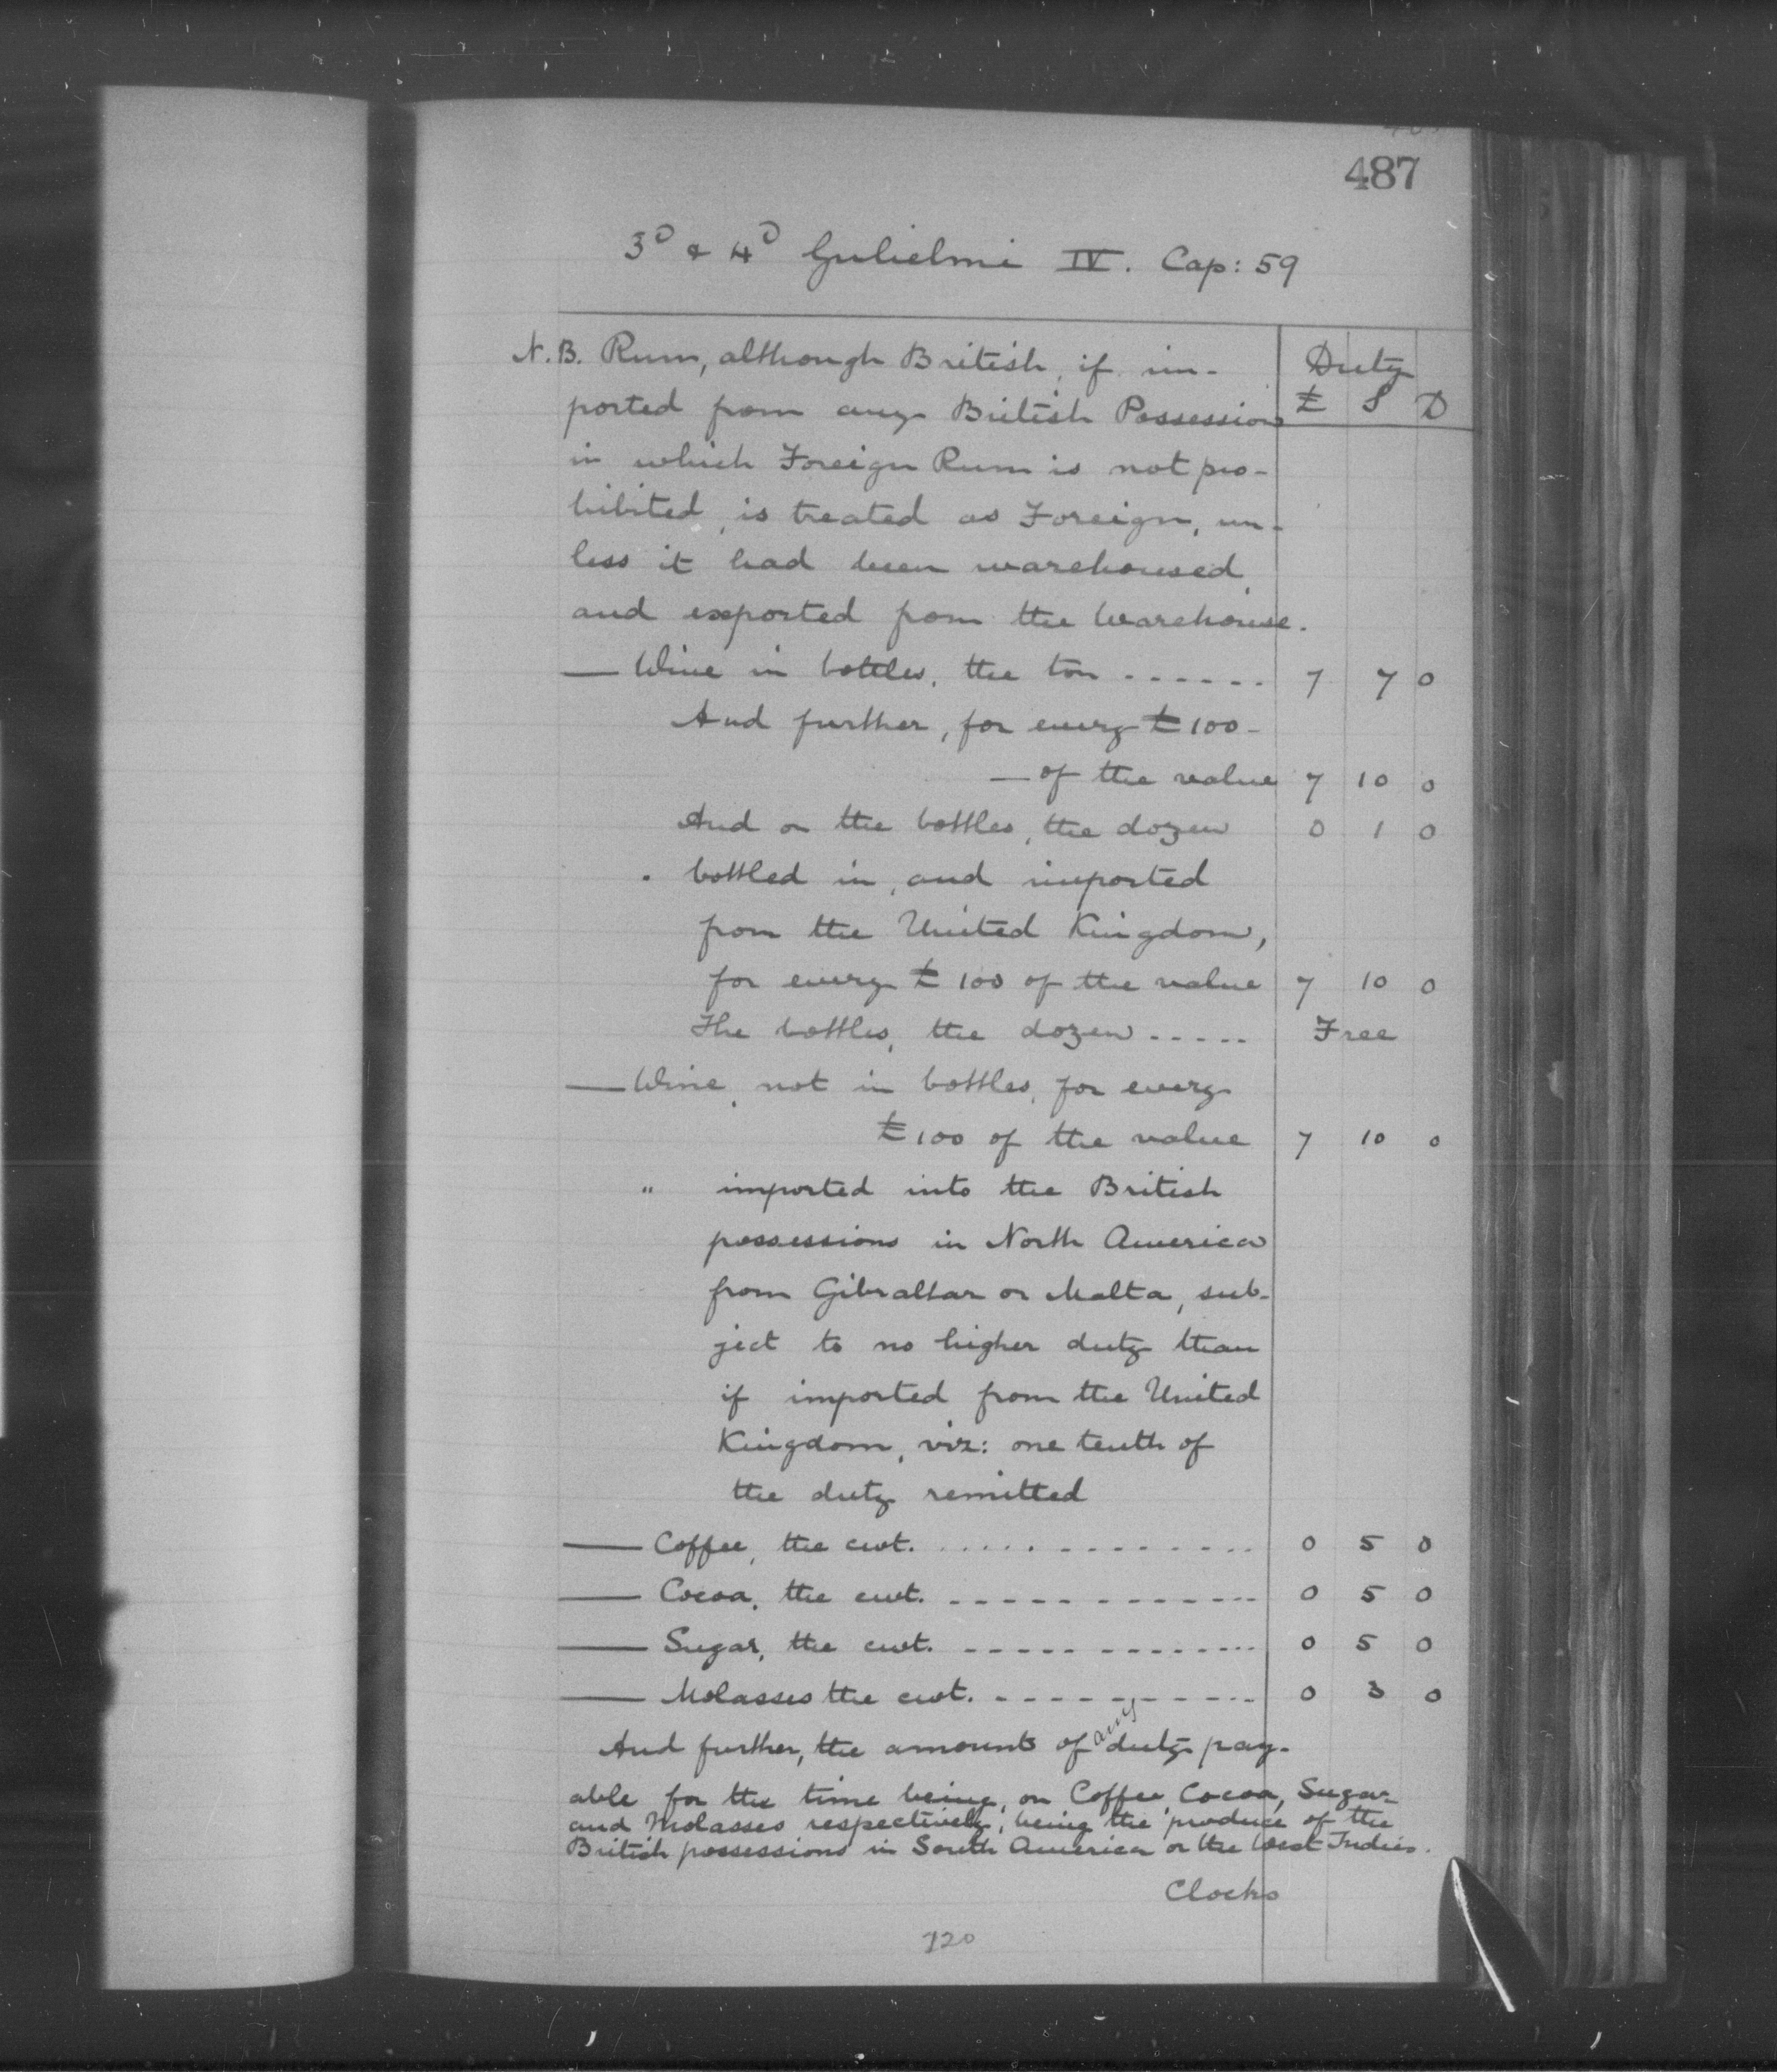 487
3° & 4° Gulielmi IV. Cap: 59
Duty
£ S D
N.B. Rum, although British, if im-
ported from any British Possession
in which Foreign Rum is not pro-
hibited, is treated as Foreign, un-
less it had been warehoused
and exported from the Warehouse.
— Wine in bottles, the ton ------ 7 7 0
And further, for every £100-
— of the value 7 10 0
And on the bottles, the dozen 0 1 0
" bottled in, and imported
from the United Kingdom,
for every £100 of the value 7 10 0
The bottles, the dozen ----- Free
— Wine, not in bottles, for every
£100 of the value 7 10 0
" imported into the British
possessions in North America
from Gibraltar or Malta, sub-
ject to no higher duty than
if imported from the United
Kingdom, viz: one tenth of
the duty remitted
— Coffee, the cwt. ............ 0 5 0
— Cocoa, the cwt. ------------ 0 5 0
— Sugar, the cwt. ------------ 0 5 0
— Molasses the cwt. ---------- 0 3 0
And further, the amounts of any duty pay-
able for the time being, on Coffee, Cocoa, Sugar
and Molasses respectively, being the produce of the
British possessions in South America or the West Indies.
Clocks
720